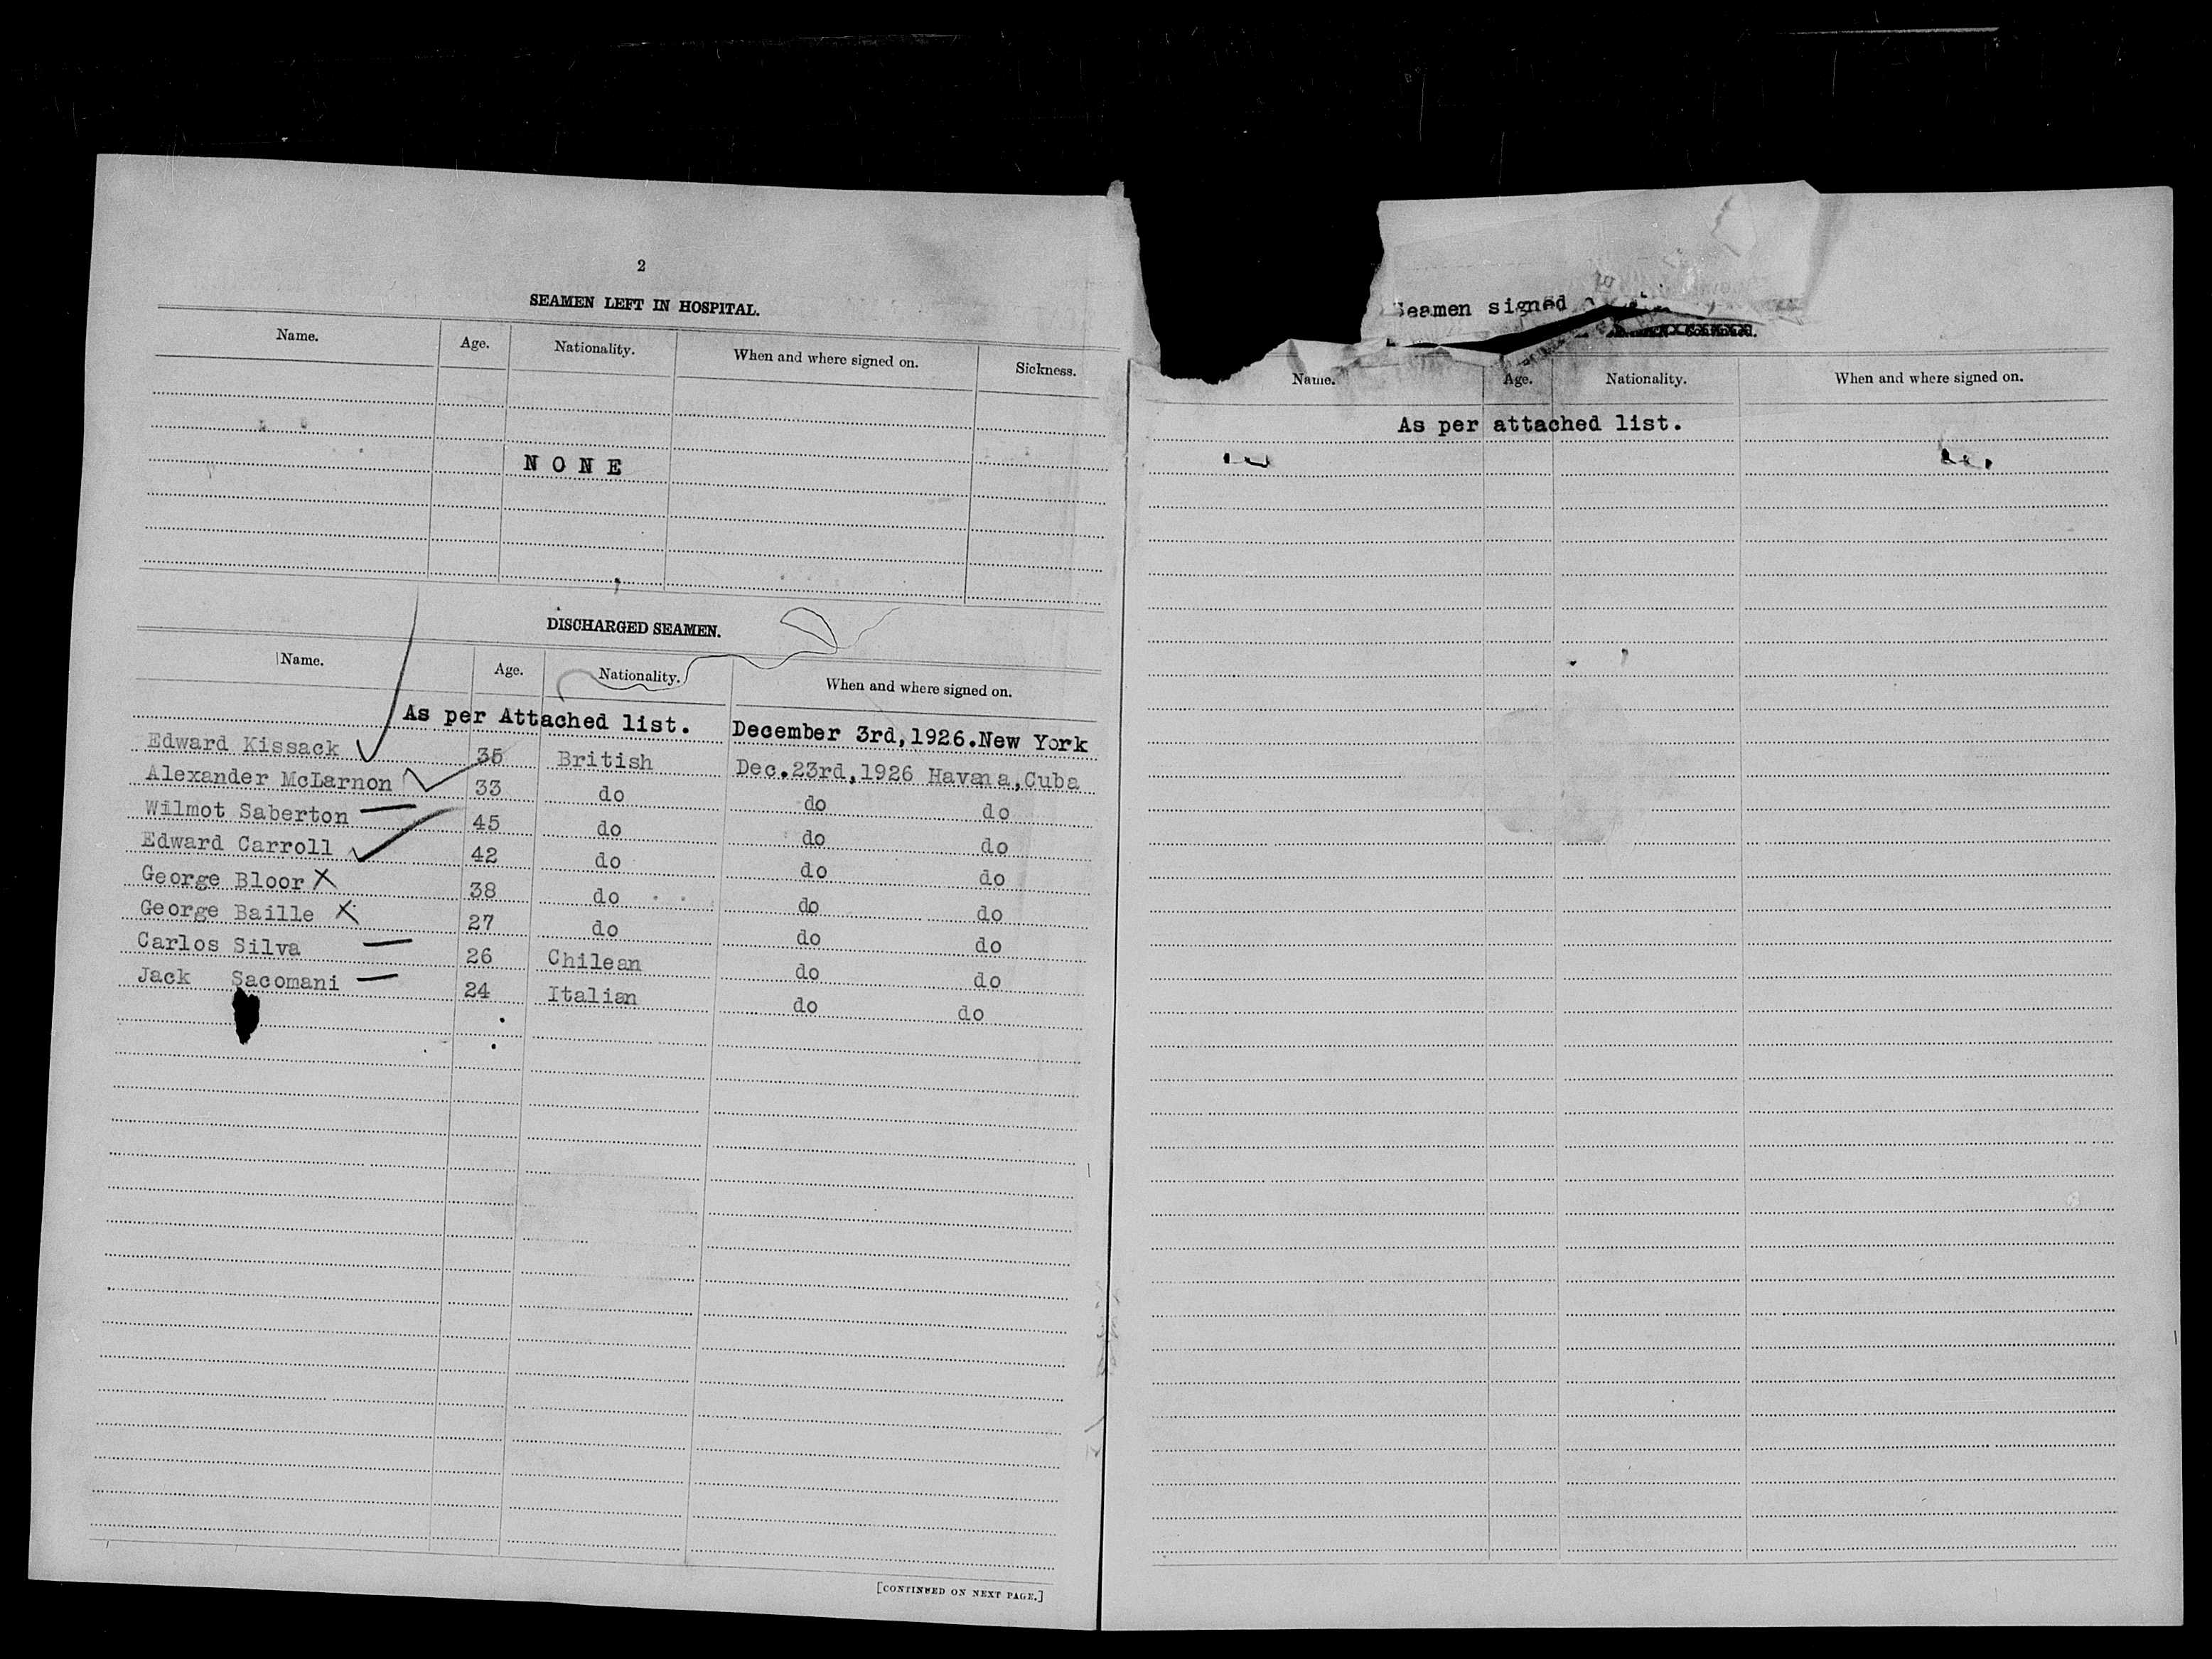 2
SEAMEN LEFT IN HOSPITAL.
Name. Age. Nationality. When and where signed on. Sickness.
N O N E
DISCHARGED SEAMEN.
Name. Age. Nationality. When and where signed on.
As per Attached list. December 3rd,1926.New York
Edward Kissack 35 British Dec.23rd,1926 Havana,Cuba
Alexander McLarnon 33 do do do
Wilmot Saberton 45 do do do
Edward Carroll 42 do do do
George Bloor X 38 do do do
George Baille X 27 do do do
Carlos Silva 26 Chilean do do
Jack Sacomani 24 Italian do do
[CONTINUED ON NEXT PAGE.]
Seamen signed
Continued.
Name. Age. Nationality. When and where signed on.
As per attached list.